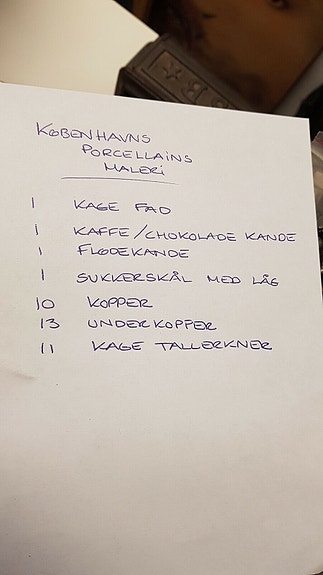 KØBENHAVNS
PORCELLAINS
MALERI
1 KAGE FAD
1 KAFFE/CHOKOLADE KANDE
1 FLØDEKANDE
1 SUKKERSKÅL MED LÅG
10 KOPPER
13 UNDERKOPPER
11 KAGE TALLERKNER